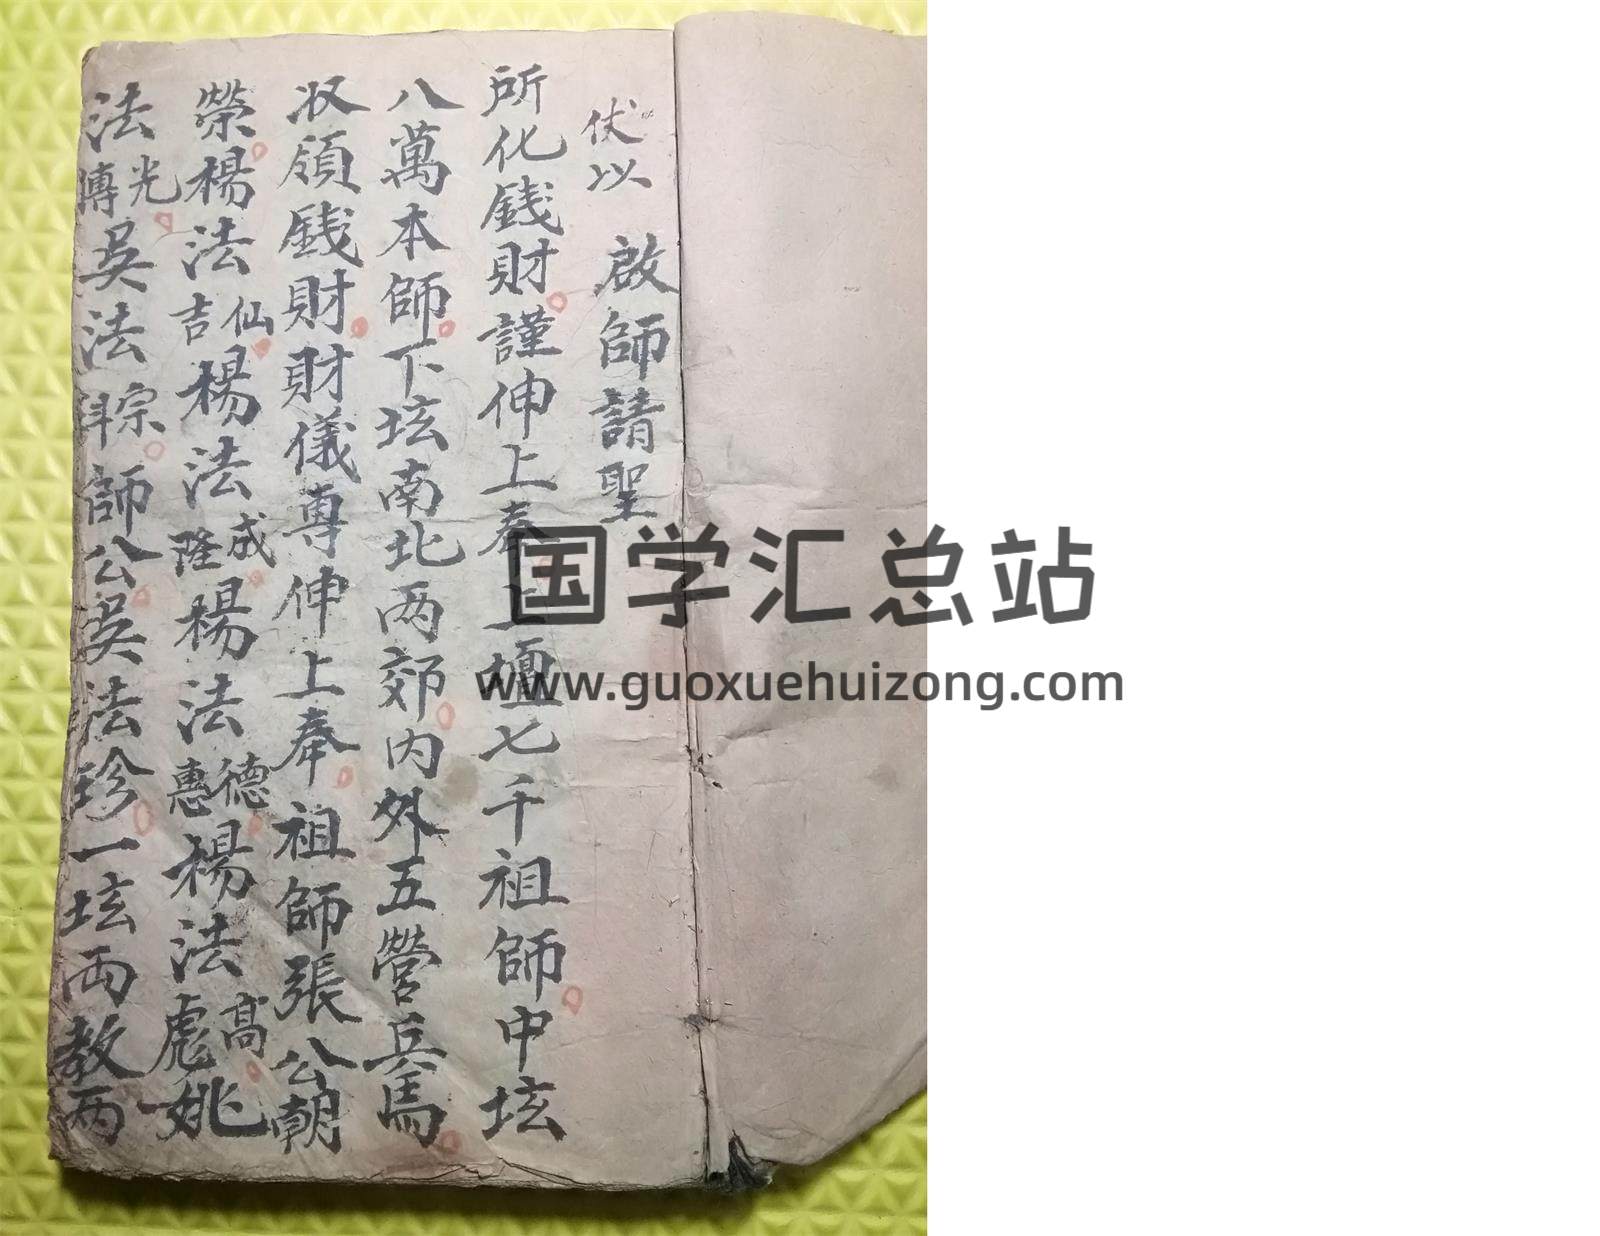 伏以 啟師請聖
所化銭財謹伸上奉上壇七千祖師中坛
八萬本師下坛南北两郊内外五營兵馬
収領銭財財儀專伸上奉祖師張公朝
榮楊法仙吉楊法成隆楊法德惠楊法高彪姚
法光傳吳法宗科師公吳法珍一坛两教两
国学汇总站
www.guoxuehuizong.com